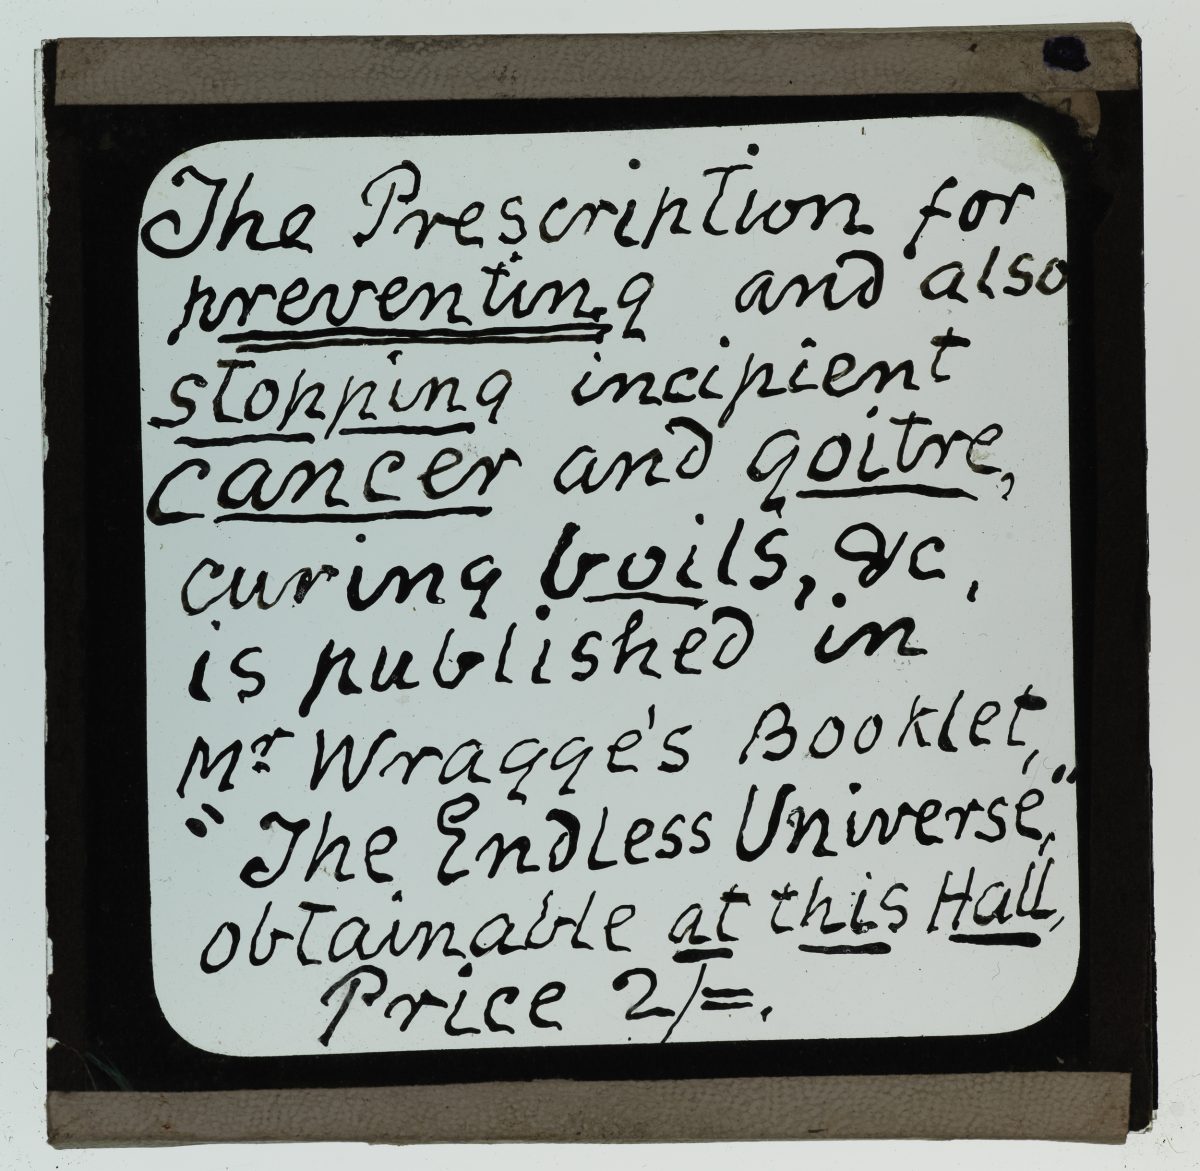 The Prescription for
preventing and also
stopping incipient
cancer and goitre,
curing boils, &c,
is published in
Mr Wragge's Booklet,
"The Endless Universe",
obtainable at this Hall,
Price 2/=.